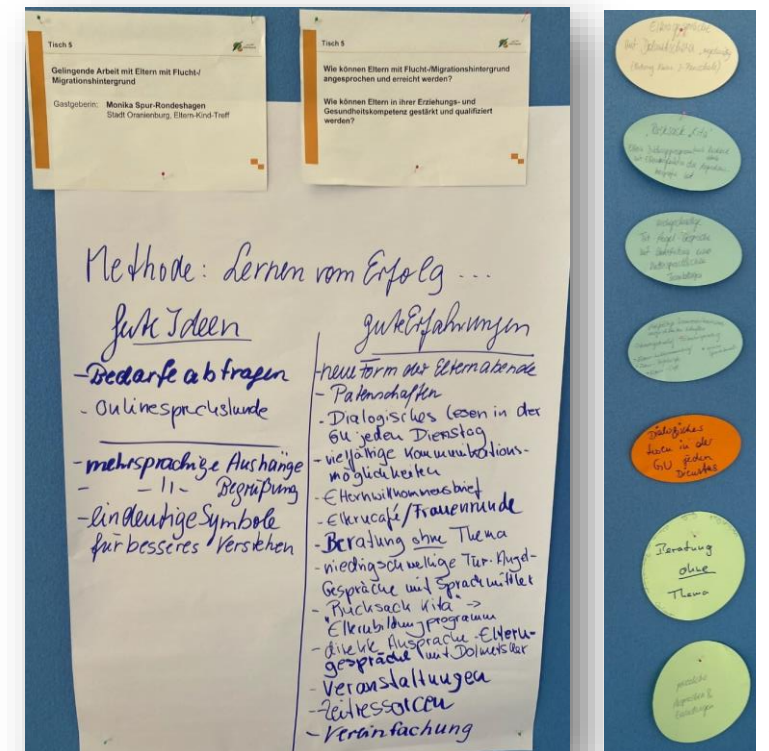 Tisch 5
Gelingende Arbeit mit Eltern mit Flucht-/
Migrationshintergrund
Gastgeberin: Monika Spur-Rondeshagen
Stadt Oranienburg, Eltern-Kind-Treff
Tisch 5
Wie können Eltern mit Flucht-/Migrationshintergrund
angesprochen und erreicht werden?
Wie können Eltern in ihrer Erziehungs- und
Gesundheitskompetenz gestärkt und qualifiziert
werden?
Methode: Lernen vom Erfolg ...
gute Ideen
- Bedarfe abfragen
- Onlinesprechstunde
- mehrsprachige Aushänge
- -11- Begrüßung
- eindeutige Symbole
für besseres Verstehen
gute Erfahrungen
- neue Form der Elternabende
- Patenschaften
- Dialogisches Lesen in der
GU jeden Dienstag
- vielfältige Kommunikations-
möglichkeiten
- Elternwillkommensbrief
- Elterncafé/Frauenrunde
- Beratung ohne Thema
- niedrigschwellige Tür-Angel-
Gespräche mit Sprachmittler
- "Rucksack Kita" ->
Elternbildungsprogramm
- direkte Ansprache - Eltern-
gespräche mit Dolmetscher
- Veranstaltungen
- Zeitressorcen
- Vereinfachung
Elterngespräche
mit
"Rucksack Kita"
Tür-Angel-Gespräche
Dialogisches
Lesen in der
GU jeden
Dienstag
Beratung
ohne
Thema
persönliche